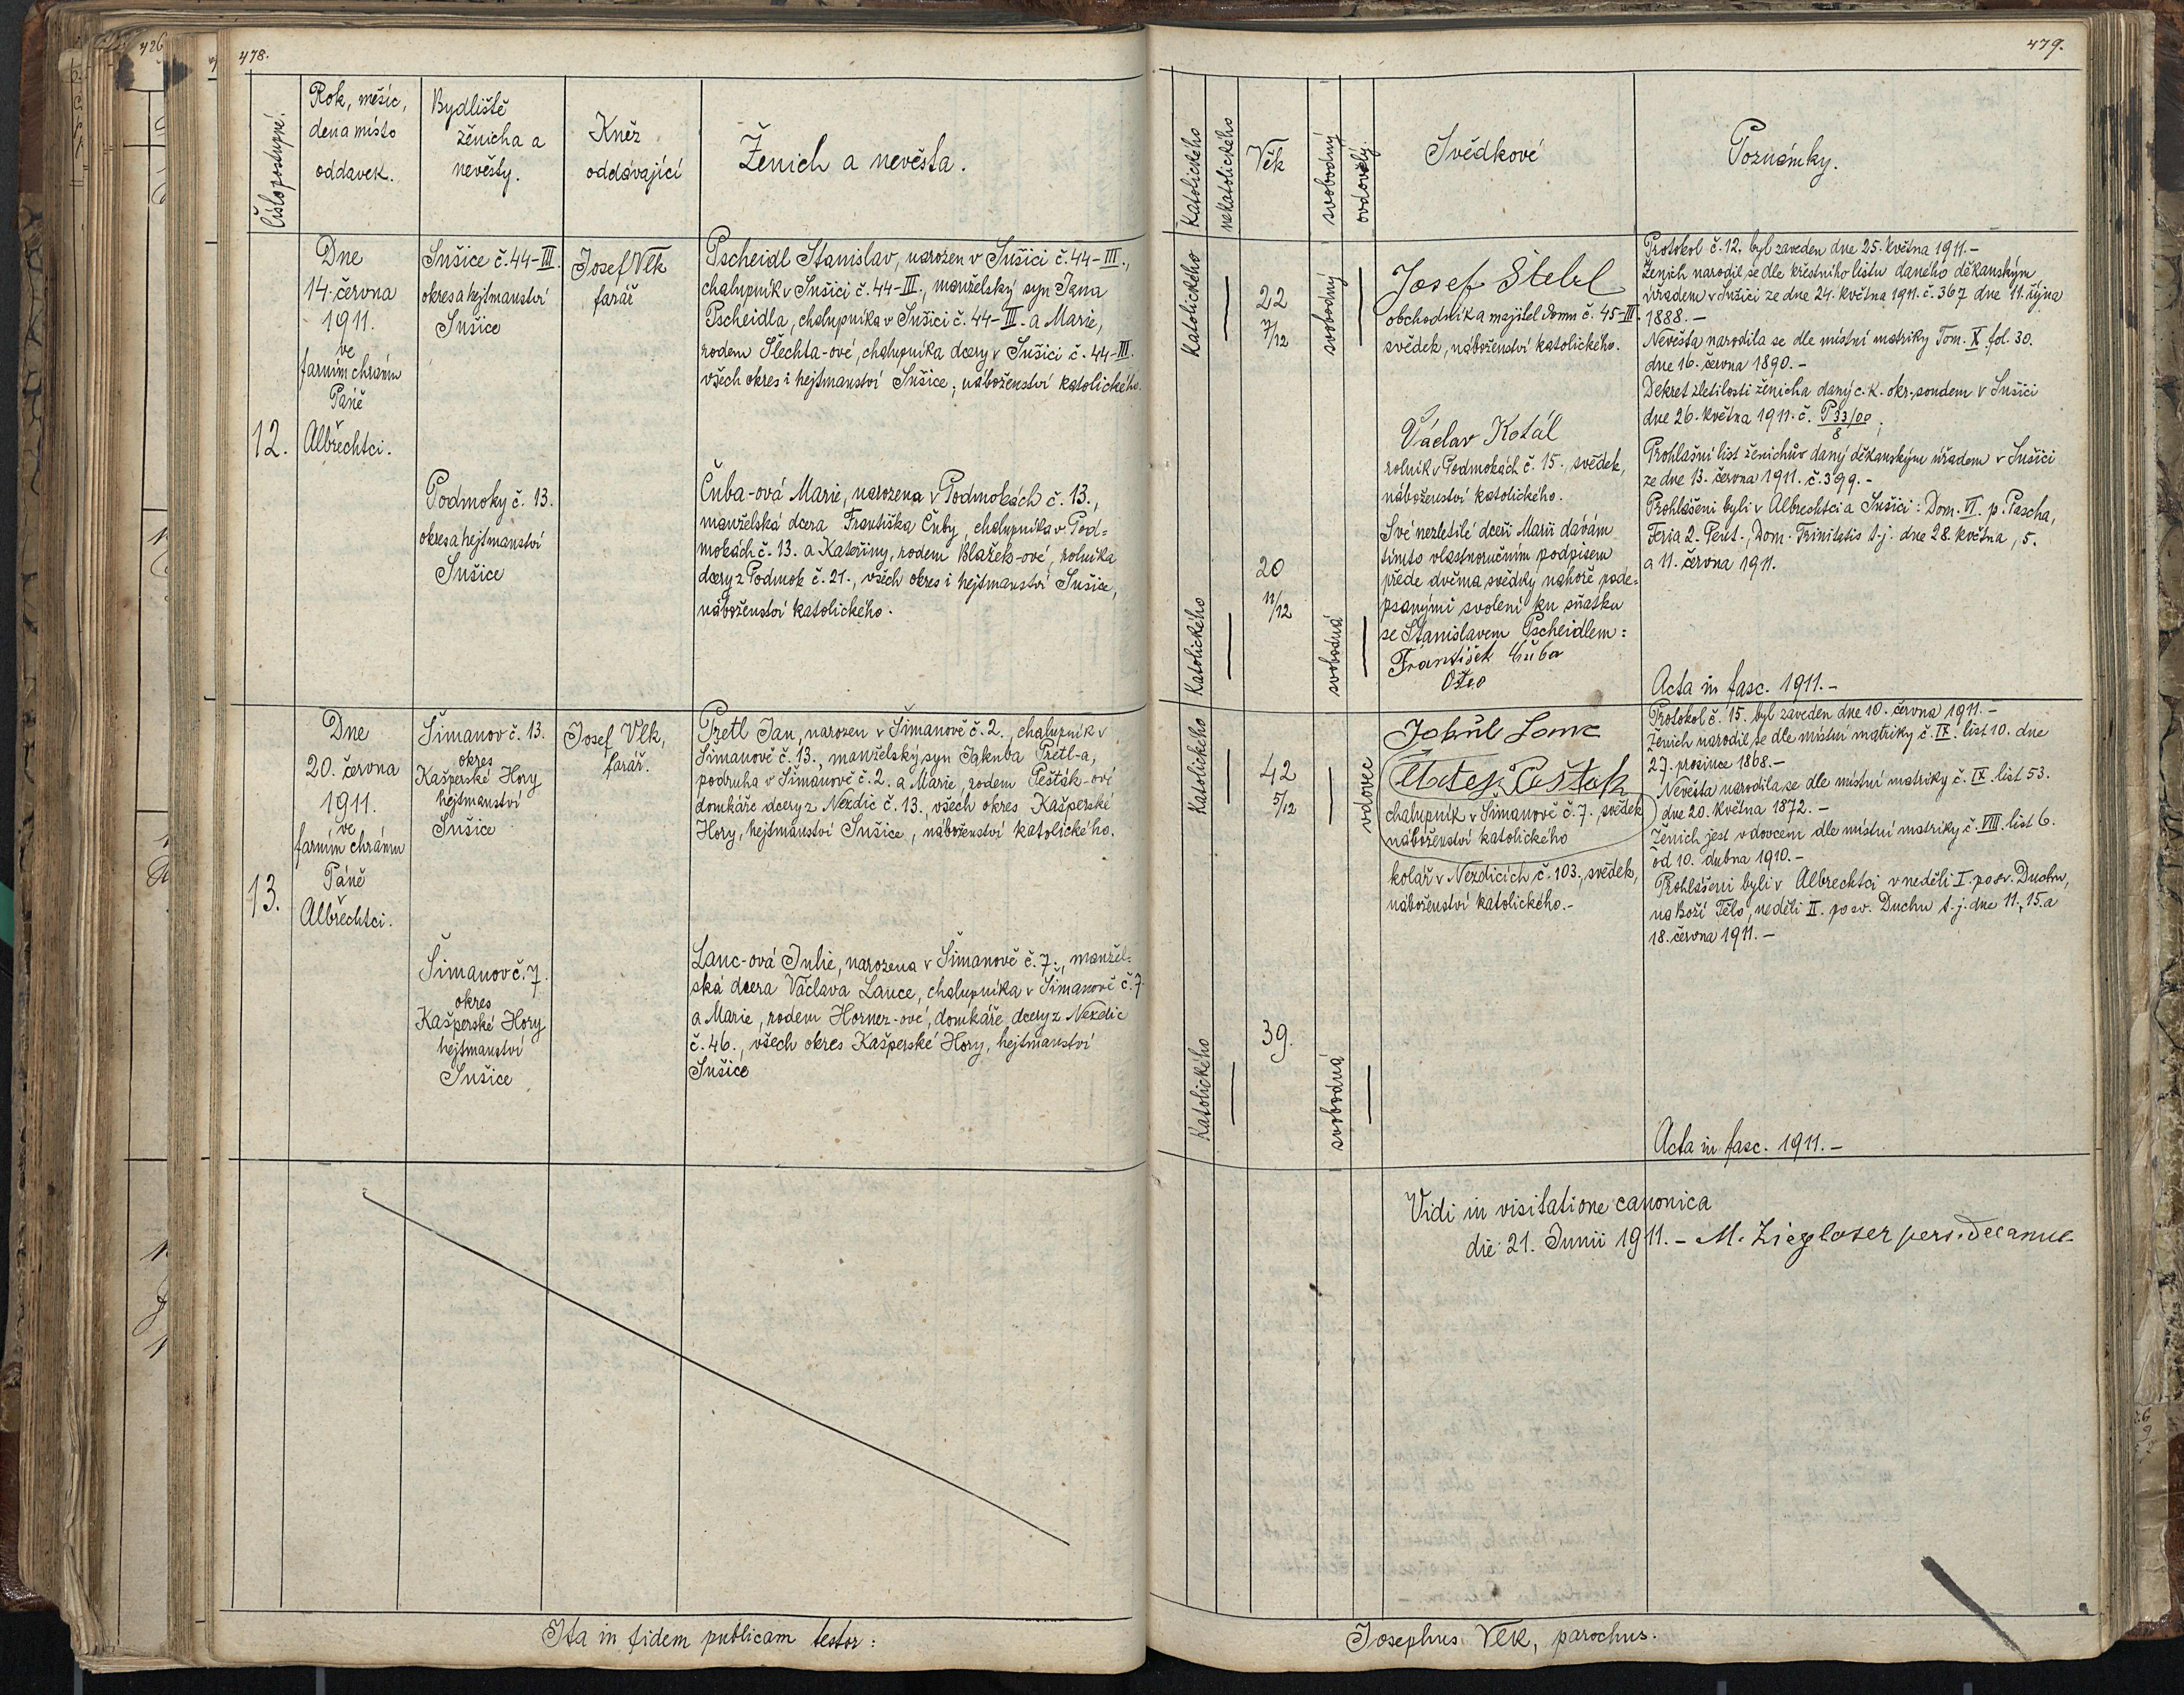 478.
Číslo postupné.
Rok, měsíc,
den a místo
oddavek.
Bydliště
ženicha a
nevěsty.
Kněz
oddávající
Ženich a nevěsta.
12.
Dne
14. června
1911.
ve
farním chrámu
Páně
Albrechtci.
Sušice č. 44-III.
okres a hejtmanství
Sušice
Josef Vlk
farář
Pscheidl Stanislav, narozen v Sušici č. 44-III.,
chalupník v Sušici č. 44-III., manželský syn Jana
Pscheidla, chalupníka v Sušici č. 44-III. a Marie,
rodem Šlechta-ové, chalupníka dcery v Sušici č. 44-III.
všech okres i hejtmanství Sušice, náboženství katolického.
Podmoky č. 13.
okres a hejtmanství
Sušice
Čuba-ová Marie, narozena v Podmokách č. 13.,
manželská dcera Františka Čuby, chalupníka v Pod=
mokách č. 13. a Kateřiny, rodem Blažek-ové, rolníka
dcery z Podmok č. 21., všech okres i hejtmanství Sušice,
náboženství katolického.
13.
Dne
20. června
1911.
ve
farním chrámu
Páně
Albrechtci.
Šimanov č. 13.
okres
Kašperské Hory
hejtmanství
Sušice
Josef Vlk,
farář.
Pretl Jan, narozen v Šimanově č. 2., chalupník v
Šimanově č. 13., manželský syn Jakuba Pretl-a,
podruha v Šimanově č. 2. a Marie, rodem Pešták-ové
domkáře dcery z Nezdic č. 13., všech okres Kašperské
Hory, hejtmanství Sušice, náboženství katolického.
Šimanov č. 7.
okres
Kašperské Hory
hejtmanství
Sušice
Lanc-ová Julie, narozena v Šimanově č. 7., manžel=
ská dcera Václava Lance, chalupníka v Šimanově č. 7
a Marie, rodem Horner-ové, domkáře dcery z Nezdic
č. 46., všech okres Kašperské Hory, hejtmanství
Sušice
Ita in fidem publicam testor:
479.
Katolického
nekatolického
Věk
svobodný
ovdovělý.
Svědkové
Poznámky.
Katolického
22
7/12
svobodný
Josef Štebl
obchodník a majitel domu č. 45-III.
svědek, náboženství katolického.
Václav Kotál
rolník v Podmokách č. 15., svědek,
náboženství katolického.
Své nezletilé dceři Marii dávám
tímto vlastnoručním podpisem
přede dvěma svědky nahoře pode=
psanými svolení ku sňatku
se Stanislavem Pscheidlem:
František Čuba
Otec
Katolického
20
11/12
svobodná
Protokol č. 12. byl zaveden dne 25. května 1911.-
Ženich narodil se dle křestního listu daného děkanským
úřadem v Sušici ze dne 24. května 1911. č. 367 dne 11. října
1888.-
Nevěsta narodila se dle místní matriky Tom. X. fol. 30.
dne 16. června 1890.-
Dekret zletilosti ženicha daný c. k. okr. soudem v Sušici
dne 26. května 1911. č. P 33/00
8
Prohlašní list ženichův daný děkanským úřadem v Sušici
ze dne 13. června 1911. č. 399.-
Prohlášeni byli v Albrechtci a Sušici: Dom. VI. p. Pascha,
Feria 2. Pent., Dom. Trinitatis t. j. dne 28. května, 5.
a 11. června 1911.
Acta in fasc. 1911.-
Katolického
42
5/12
vdovec
Matěj Pešták
chalupník v Šimanově č. 7., svědek
náboženství katolického
kolář v Nezdicích č. 103., svědek,
náboženství katolického.-
Katolického
39.
svobodná
Protokol č. 15. byl zaveden dne 10. června 1911.-
Ženich narodil se dle místní matriky č. IX. list 10. dne
27. prosince 1868.-
Nevěsta narodila se dle místní matriky č. IX. list 53.
dne 20. května 1872.-
Ženich jest vdovcem dle místní matriky č. VIII. list 6.
od 10. dubna 1910.-
Prohlášeni byli v Albrechtci v neděli I. po sv. Duchu,
na Boží Tělo, neděli II. po sv. Duchu t. j. dne 11., 15. a
18. června 1911.-
Acta in fasc. 1911.-
Vidi in visitatione canonica
die 21. Junii 1911.- M. Ziegloser pers. Decanus
Josephus Vlk, parochus.